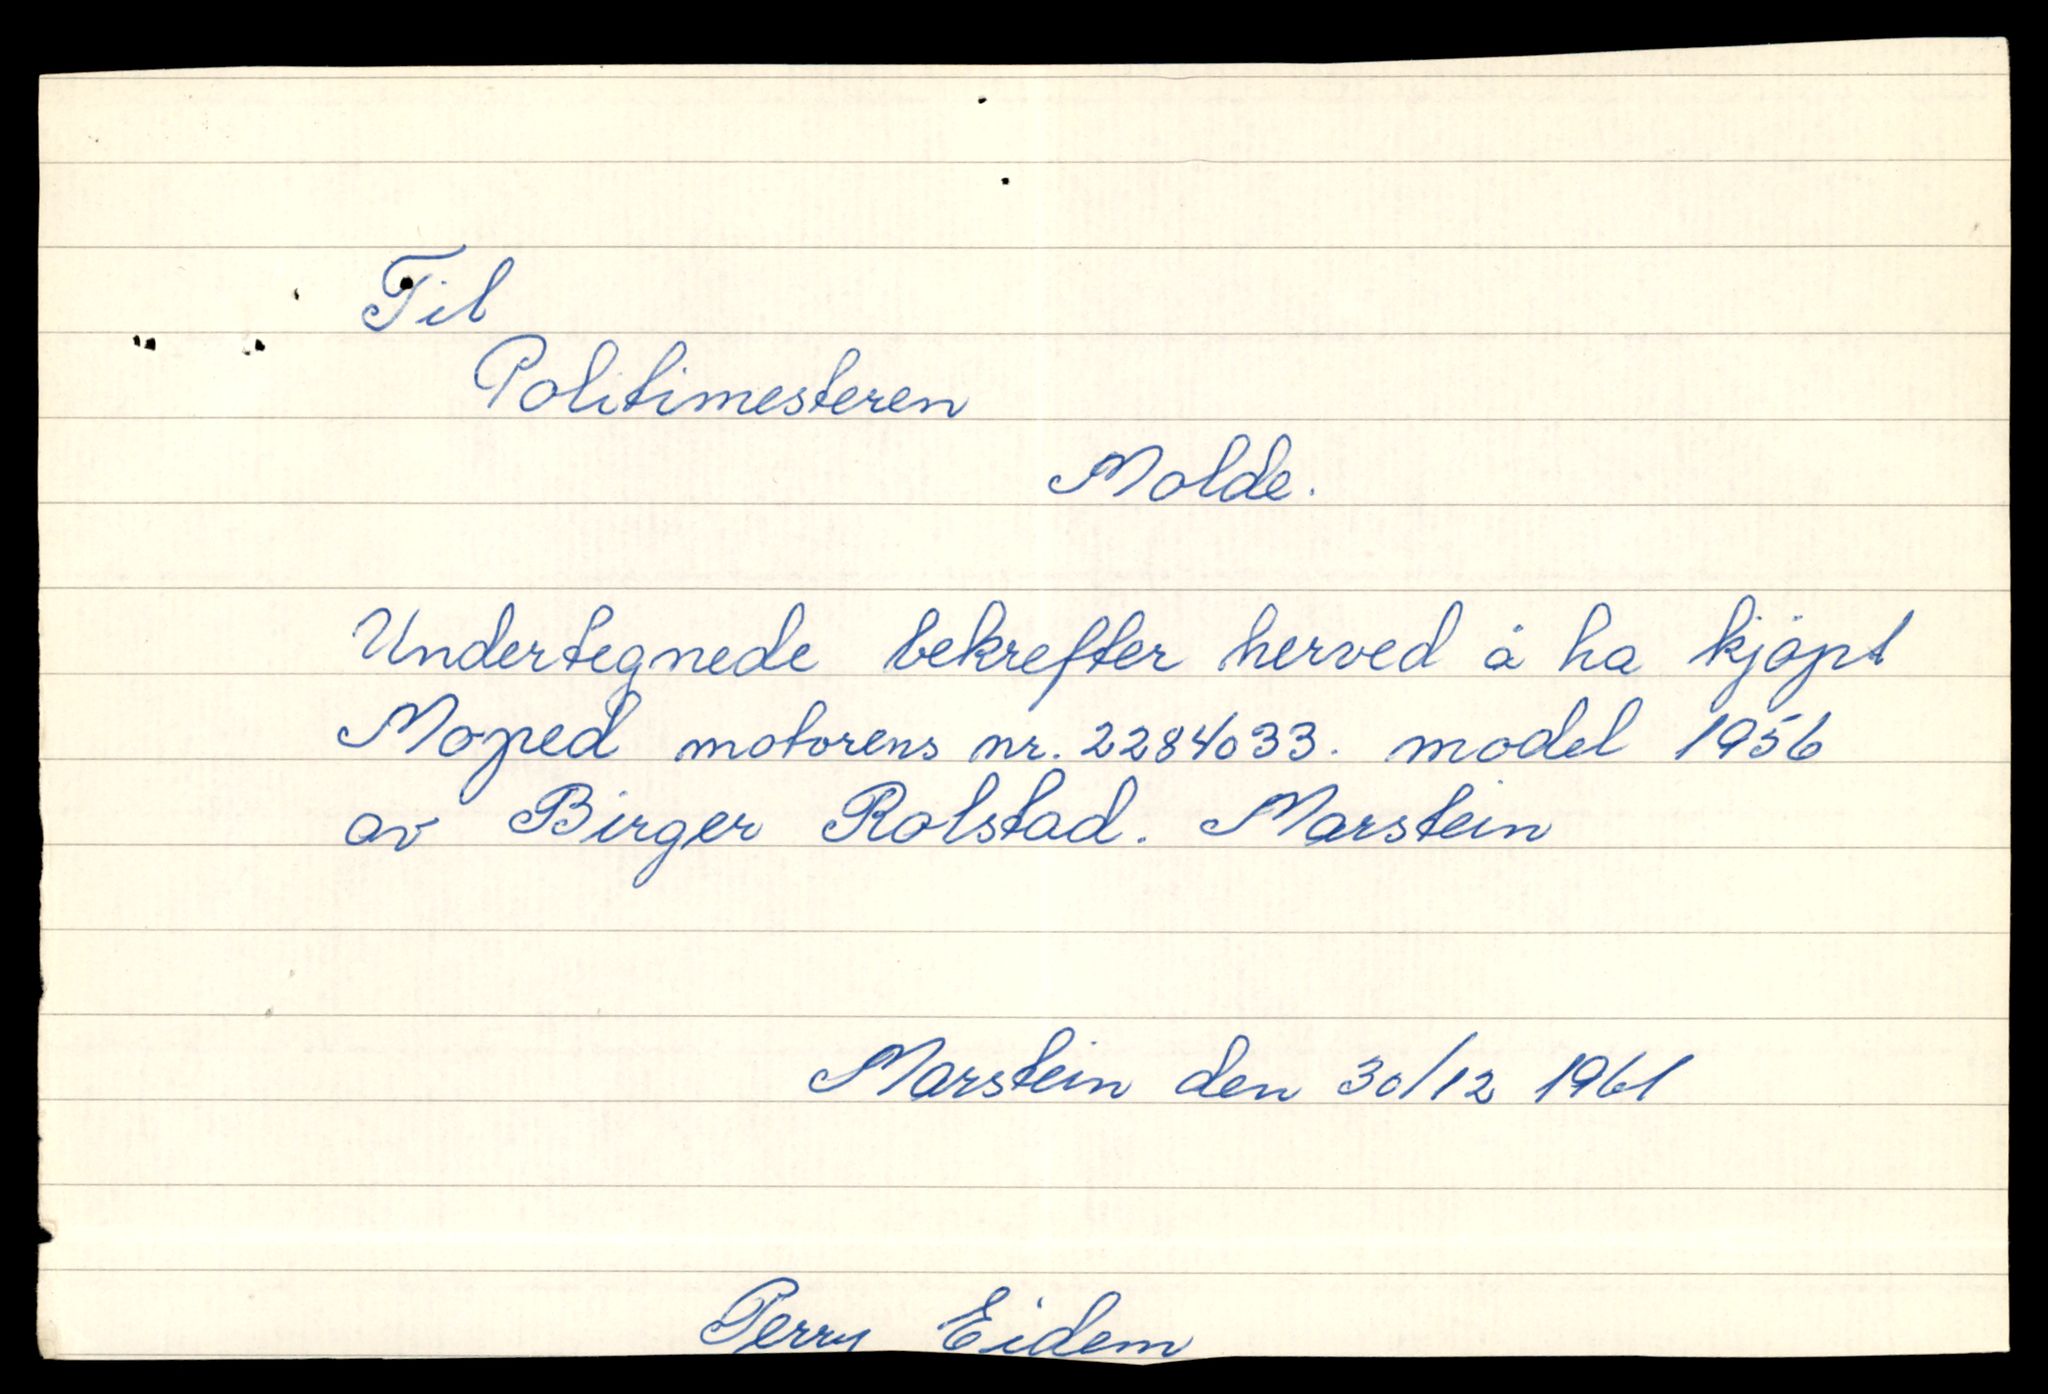 Til
Politimesteren
Molde.
Undertegnede bekrefter herved å ha kjøpt
Moped motorens nr. 2284033. model 1956
av Birger Rolstad. Marstein
Marstein den 30/12 1961
Perry Eidem